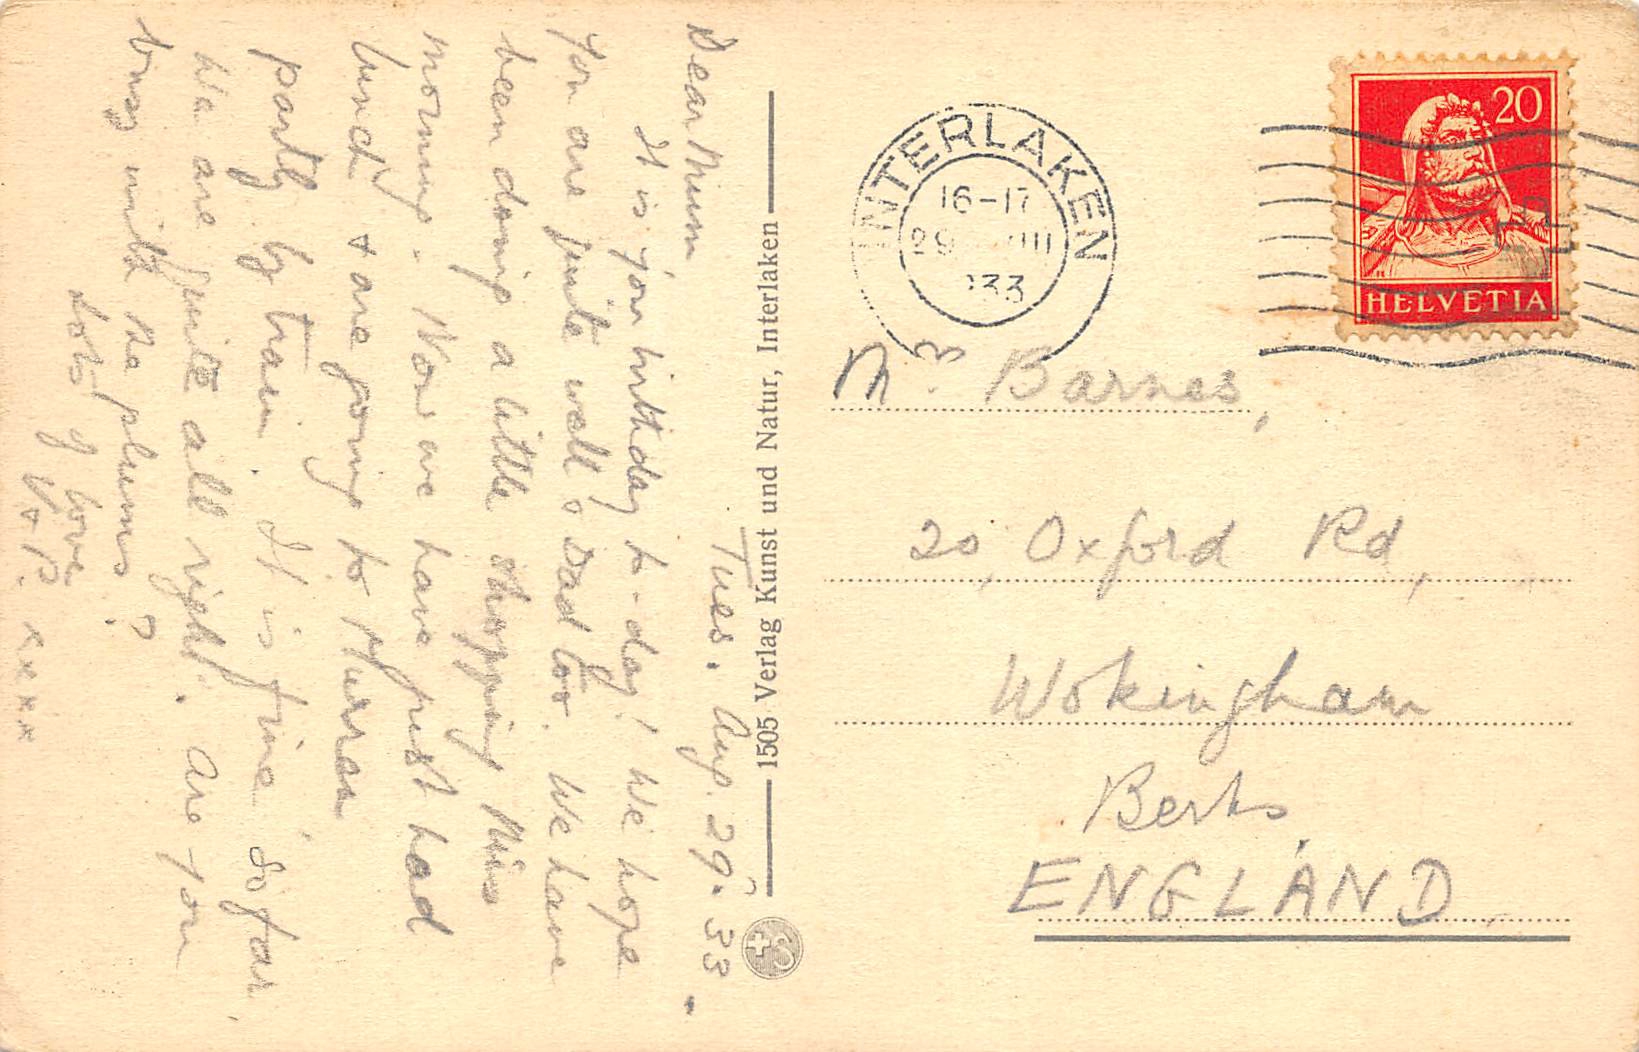 Tues. Aug. 29. 33.
Dear Mum,
It is your birthday to-day! We hope
you are quite well & Dad too. We have
been doing a little shopping this
morning. Now we have just had
lunch & are going to Murren
partly by train. It is fine, so far,
We are quite all right. Are you
busy with the plums?
Lots of love
V & P. xxxx
1505 Verlag Kunst und Natur, Interlaken
INTERLAKEN
16-17
29 VIII
33
20
HELVETIA
Mrs Barnes,
20, Oxford Rd,
Wokingham
Berks.
ENGLAND.